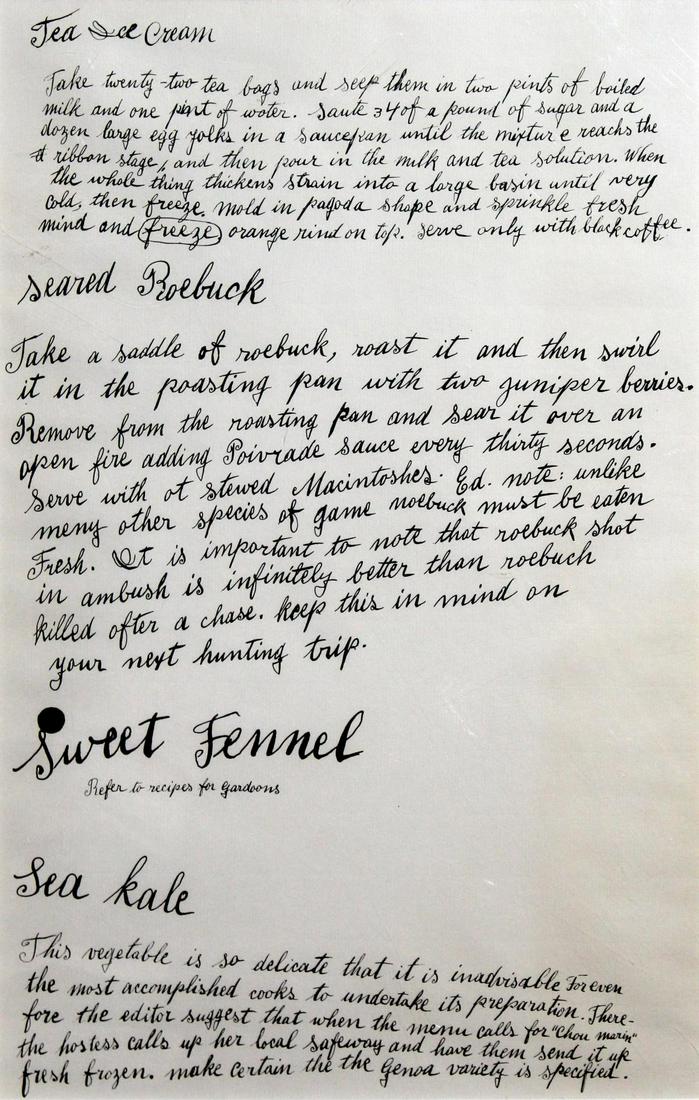 Tea Ice Cream
Take twenty-two tea bags and seep them in two pints of boiled
milk and one pint of water. Saute 34 of a pound of sugar and a
dozen large egg yolks in a saucepan until the mixture reachs the
ribbon stage, and then pour in the milk and tea solution. When
the whole thing thickens strain into a large basin until very
cold, then freeze. Mold in pagoda shape and sprinkle fresh
mind and freeze orange rind on top. Serve only with black coffee.
Seared Roebuck
Take a saddle of roebuck, roast it and then swirl
it in the poasting pan with two juniper berries.
Remove from the roasting pan and sear it over an
open fire adding Poivrade sauce every thirty seconds.
Serve with ot stewed Macintoshes. Ed. note: unlike
meny other species of game roebuck must be eaten
Fresh. It is important to note that roebuck shot
in ambush is infinitely better than roebuch
killed ofter a chase. keep this in mind on
your next hunting trip.
Sweet Fennel
Refer to recipes for Gardoons
Sea kale
This vegetable is so delicate that it is inadvisable For even
the most accomplished cooks to undertake its preparation. There-
fore the editor suggest that when the menu calls for "Chou marin"
the hostess calls up her local safeway and have them send it up
fresh frozen. make certain the the Genoa variety is specified.